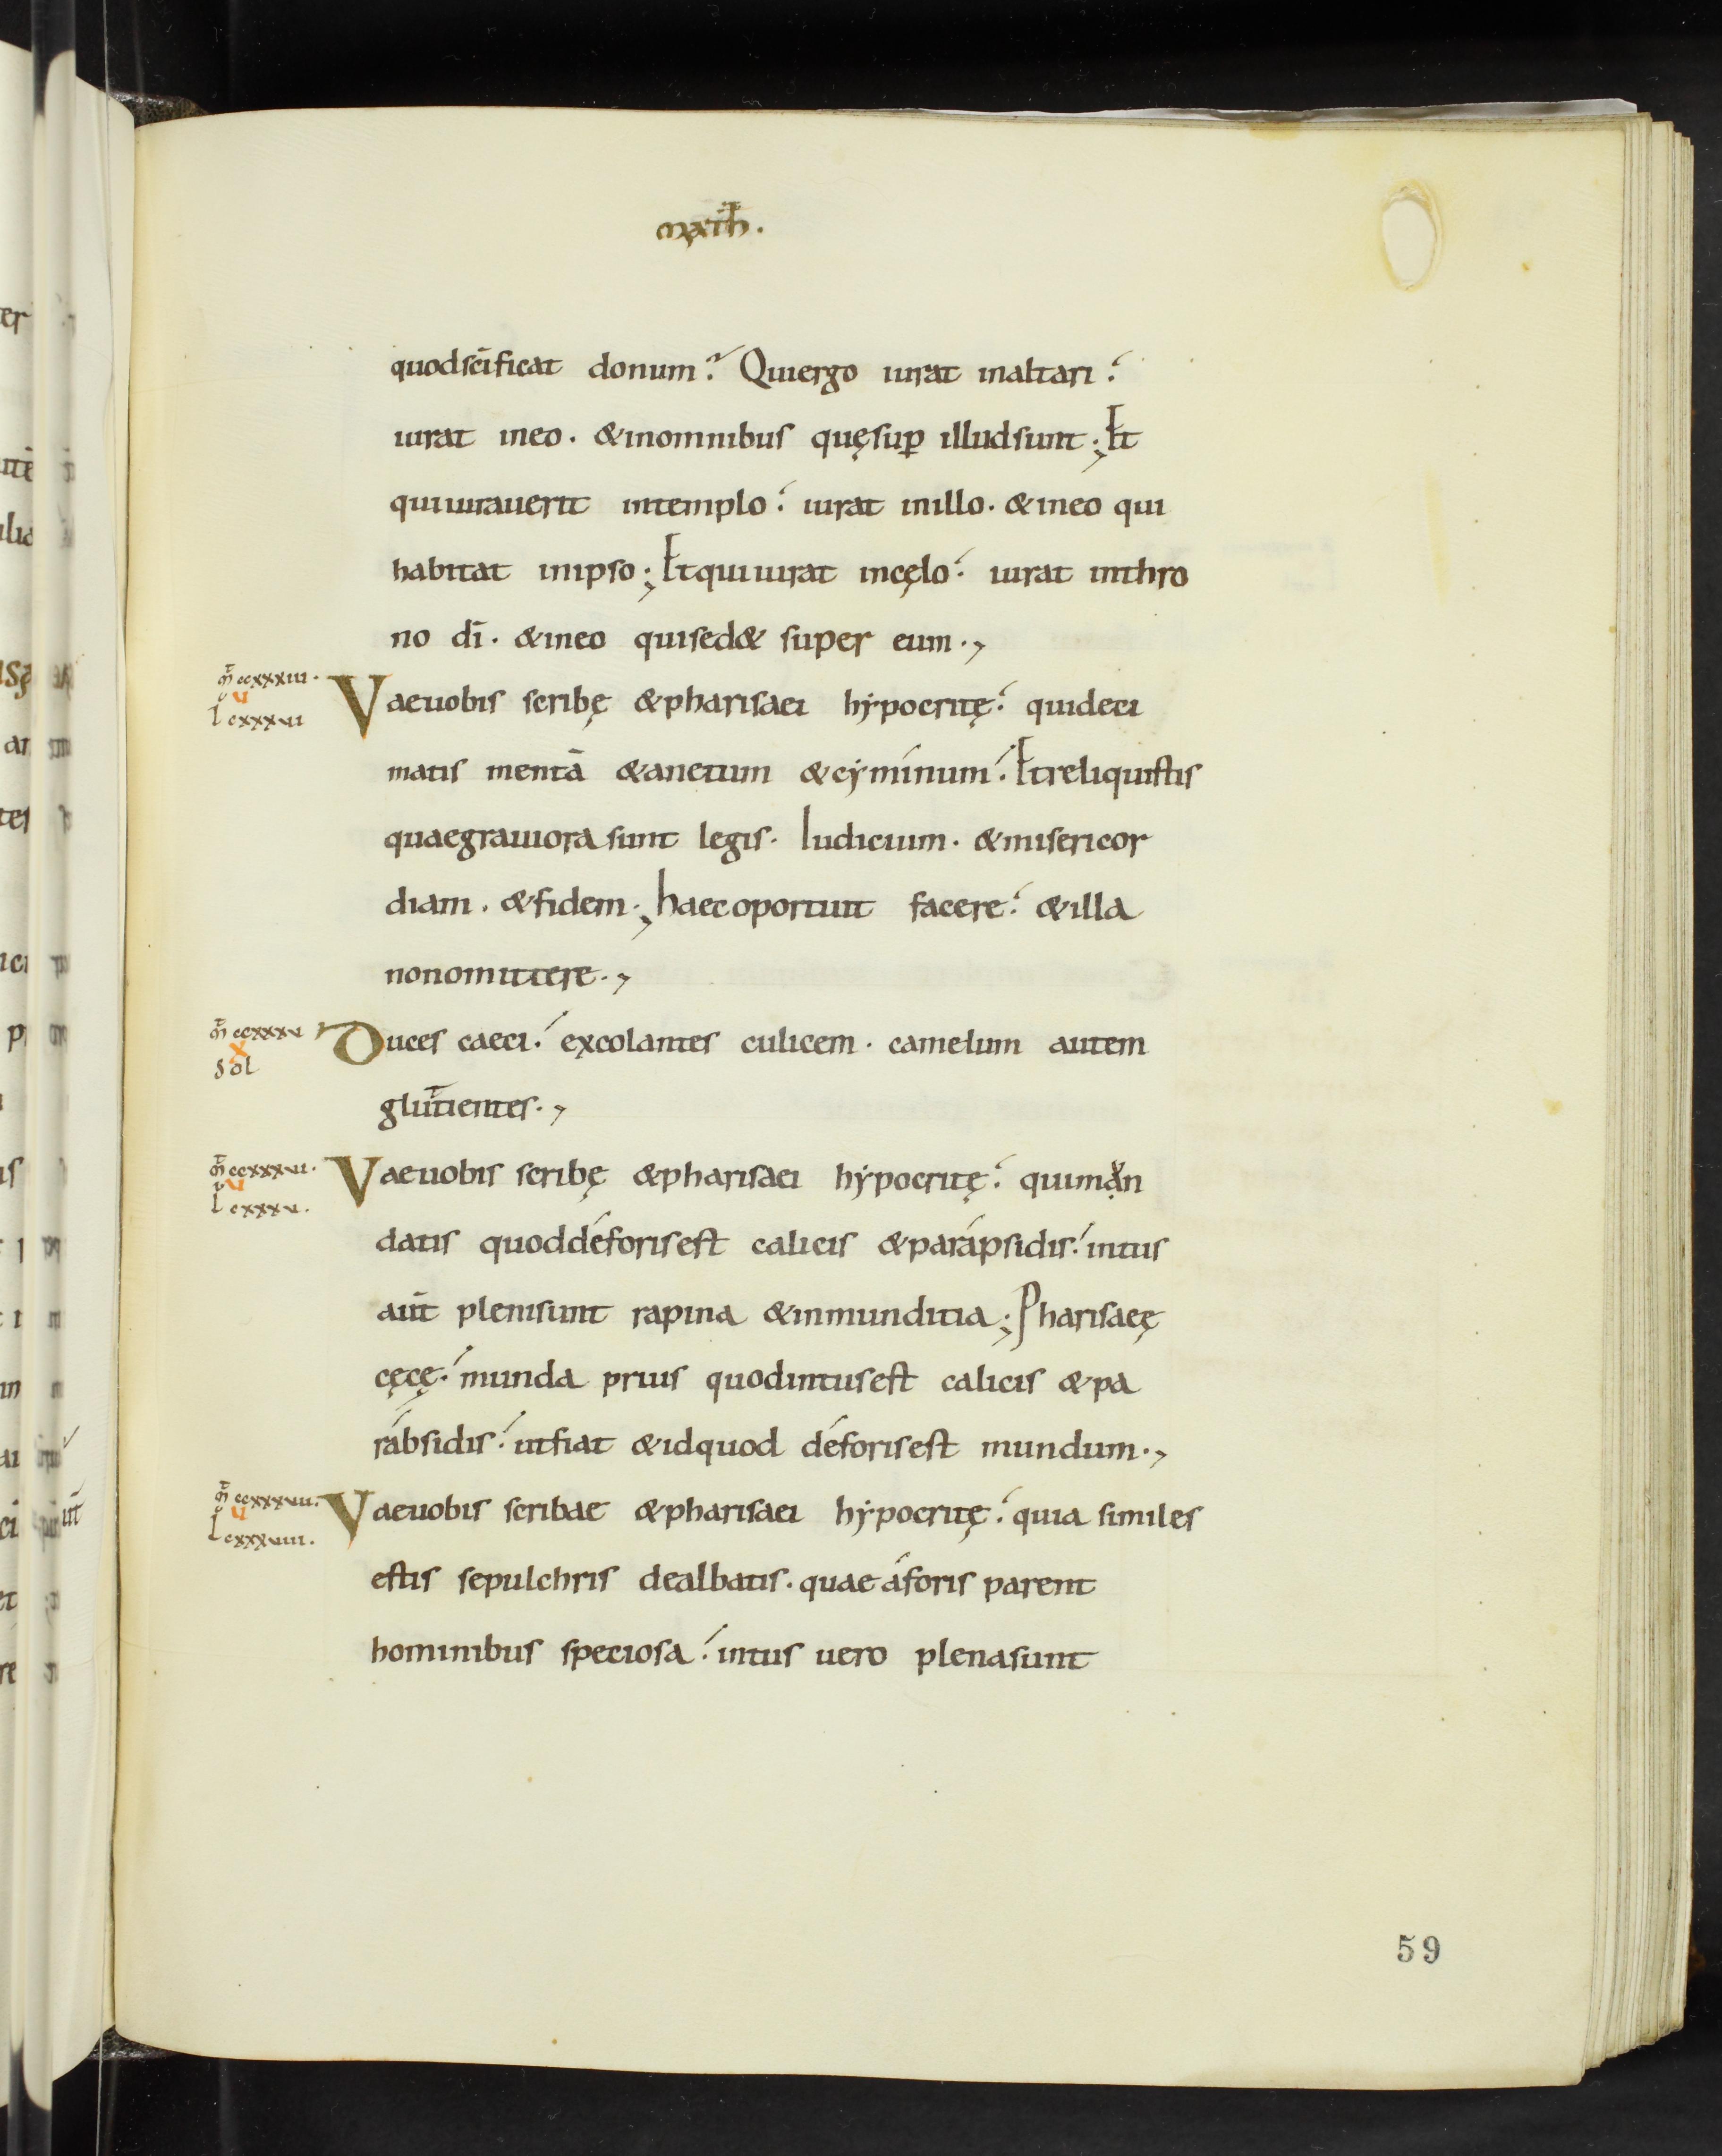 math̄.
quodsc̄ificat donum? Quiergo iurat inaltari.
iurat ineo. &inomnibus quęsuꝑ illudsunt; Et
quiiurauerit intemplo. iurat inillo. &ineo qui
habitat inipso; Etquiiurat incęlo. iurat inthro
no dī. &ineo quised& super eum.,
m̄ ccxxxiiii.
u
l cxxxvi
Vaeuobis scribę &pharisaei hẏpocritę. quideci
matis mentā &anetum &cẏmínum. Etreliquistis
quaegrauiora sunt legis. Iudicium. &misericor
diam. &fidem; haecoportuit facere. &illa
nonomittere.,
m̄ ccxxxv
x
sol
Duces caeci. excolantes culicem. camelum autem
glutientes.,
m̄ ccxxxvi.
v
l cxxxv.
Vaeuobis scribę &pharisaei hẏpocritę. quimun
datis quoddéforisest calicis &parápsidis. intus
aūt plenisunt rapina &inmunditia; Pharisaeę
cęcę. munda prius quodintusest calicis &pa
rábsidis. utfiat &idquod déforisest mundum.,
m̄ ccxxxvii.
u
l cxxxviii.
Vaeuobis scribae &pharisaei hẏpocritę. quia similes
estis sepulchris dealbatis. quae áforis parent
hominibus speciosa. intus uero plenasunt
59